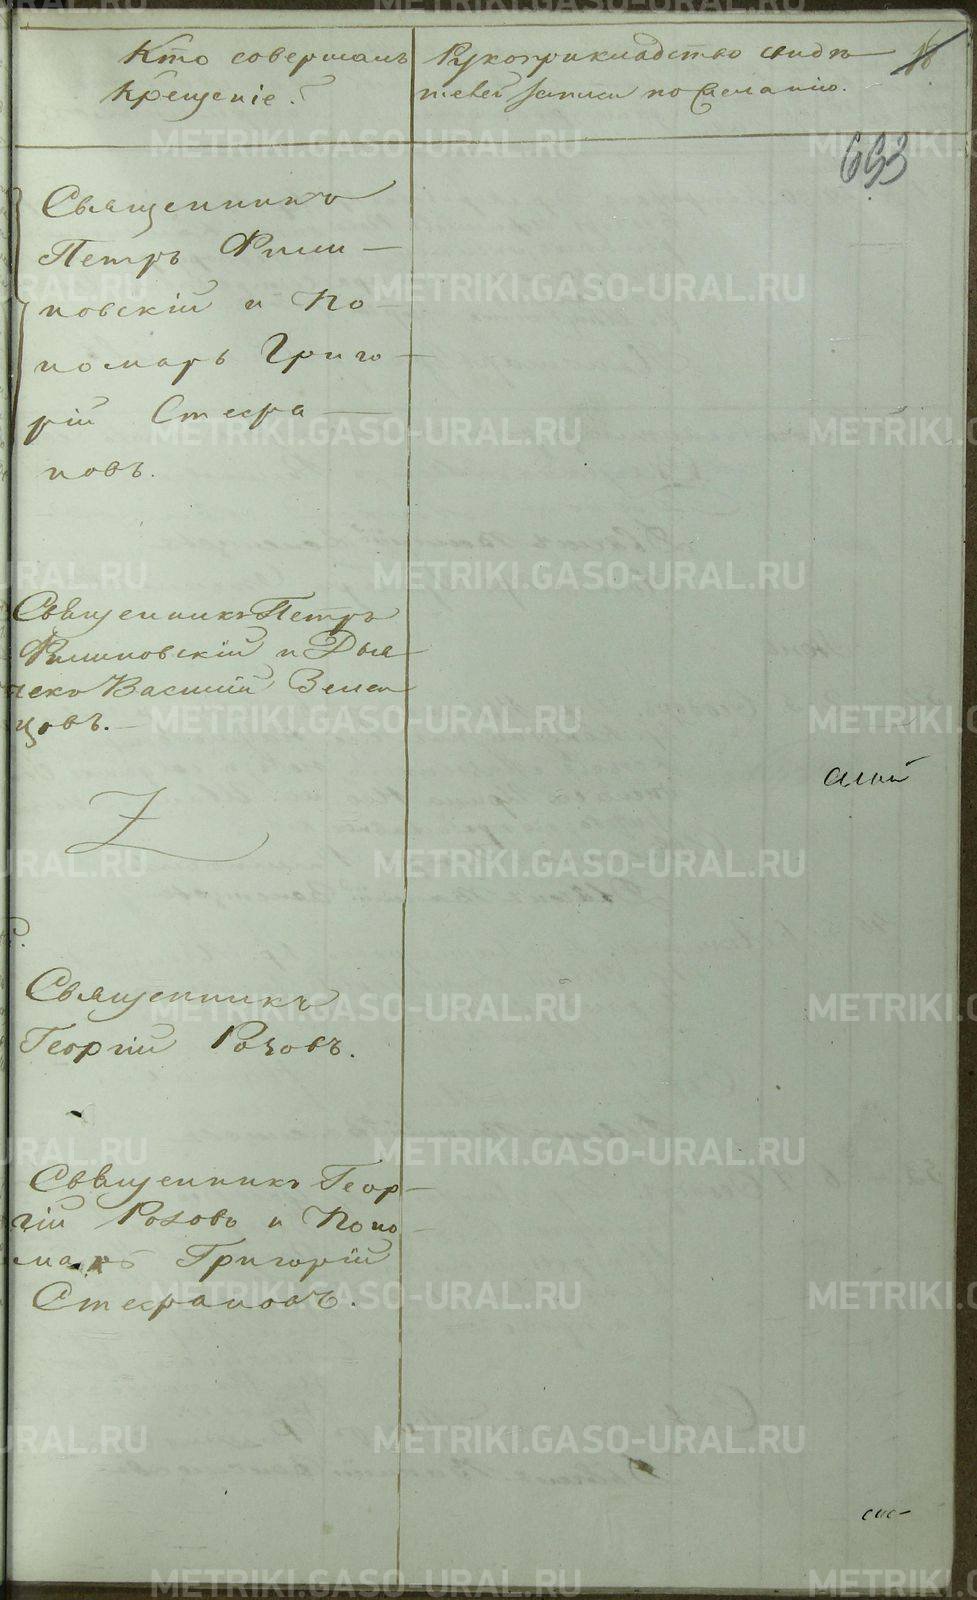 Кто совершалъ
Крещеніе.
Рукоприкладство свидѣ
телей записи по желанію.
693
Священникъ
Петръ Фили—
повскій и По
номарь Григо
рій Стефа—
новъ.
Священникъ Петръ
Филиповскій и Дья
чекъ Василій Зелен
цовъ.—
Священникъ
Георгій Розовъ.
Священникъ Геор—
гій Розовъ и Поно
марь Григорій
Стефановъ.
METRIKI.GASO-URAL.RU